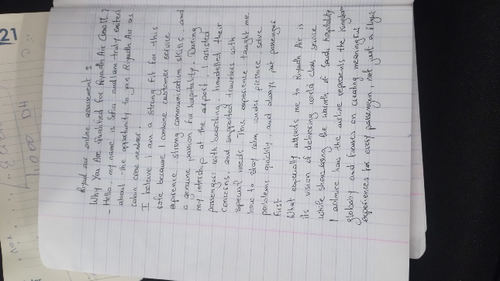 Riyad air online assessment :
Why You Are Qualified for Riyadh Air Cabin Crew?
- Hello, my name is Safia, and I am truly excited
about the opportunity to join Riyadh Air as
cabin crew member.
I believe I am a strong fit for this
role because I combine customer service
experience, strong communication skills, and
a genuine passion for hospitality. During
my internship at the airport, I assisted
passengers with boarding, handled their
concerns, and supported travelers with
special needs. This experience taught me
how to stay calm under pressure, solve
problems quickly, and always put passengers
first.
What especially attracts me to Riyadh Air is
its vision of delivering world class service
while showcasing the warmth of Saudi hospitality
I admire how the airline represents the Kingdom
globally and focuses on creating meaningful
experiences for every passenger, not just a flight
21
DH